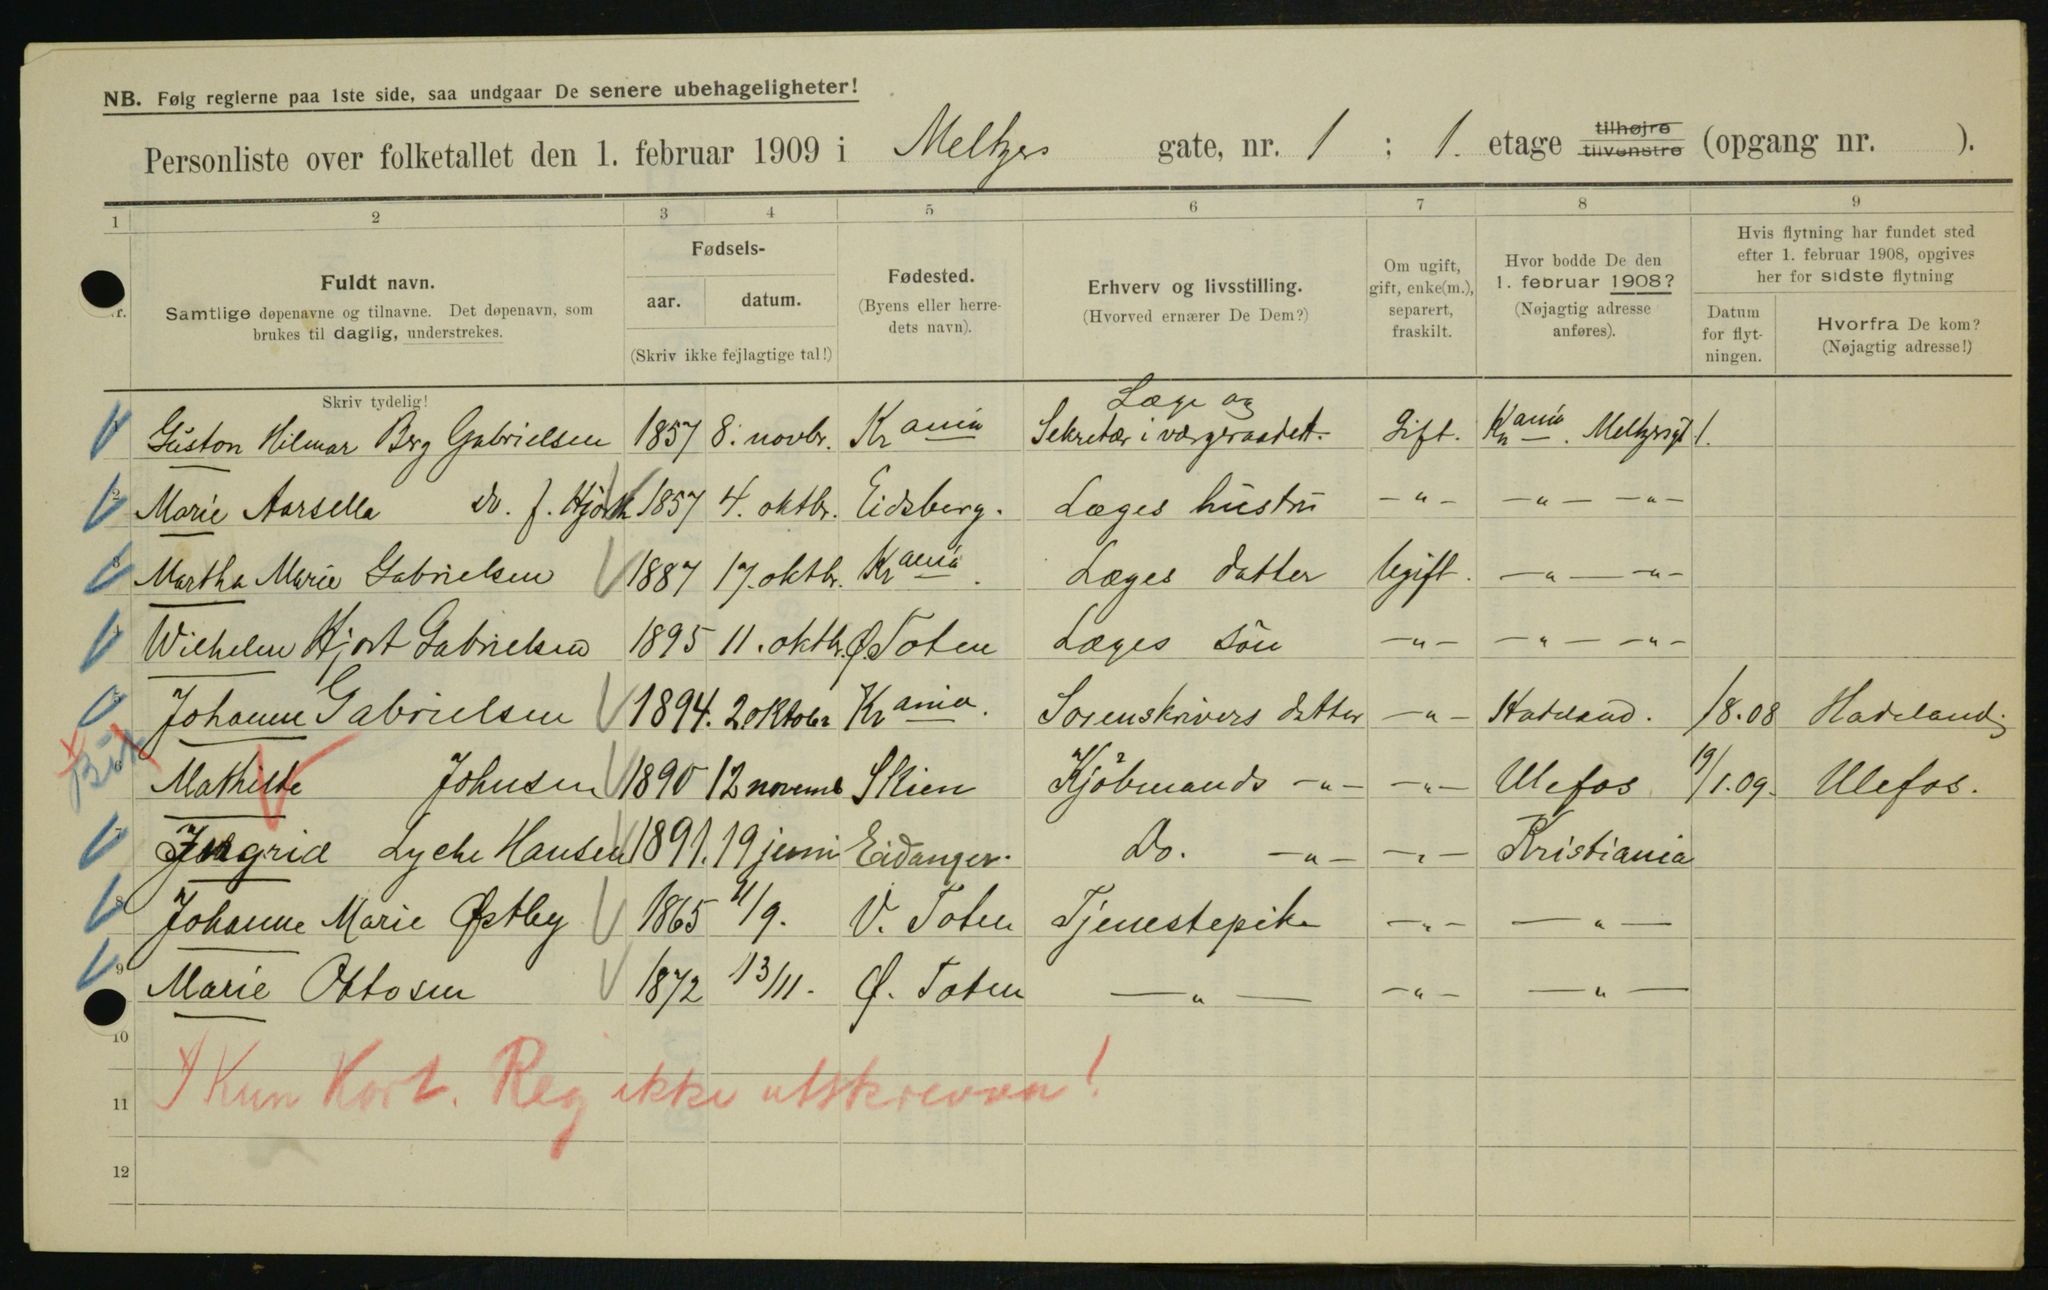 NB. Følg reglerne paa 1ste side, saa undgaar De senere ubehageligheter!
Personliste over folketallet den 1. februar 1909 i Meltzers gate, nr. 1 ; 1. etage tilhøjre tilvenstre (opgang nr. ).
1 2 3 4 5 6 7 8 9
Fuldt navn.
Samtlige døpenavne og tilnavne. Det døpenavn, som
brukes til daglig, understrekes.
Skriv tydelig!
Fødsels-
aar. datum.
(Skriv ikke fejlagtige tal!)
Fødested.
(Byens eller herre-
dets navn).
Erhverv og livsstilling.
(Hvorved ernærer De Dem?)
Om ugift,
gift, enke(m.),
separert,
fraskilt.
Hvor bodde De den
1. februar 1908?
(Nøjagtig adresse
anføres).
Hvis flytning har fundet sted
efter 1. februar 1908, opgives
her for sidste flytning
Datum
for flyt-
ningen.
Hvorfra De kom?
(Nøjagtig adresse!)
Guston Hilmar Berg Gabrielsen 1857 8. novbr. Kr ania Læge og Sekretær i værgeraadet. Gift. Kr ania. Meltzersgt 1.
2 Marie Aarsella do. f. Hjorth 1857 4. oktbr. Eidsberg. Læges hustru —"— —"— —"—
3 Martha Marie Gabrielsen 1887 17. oktbr. Kr ania. Læges datter Ugift. —"— —"—
Wilhelm Hjort Gabrielsen 1895 11. oktbr. Ø. Toten Læges søn —"— —"— —"—
Johanne Gabrielsen 1894. 2 oktober Kr ania. Sorenskrivers datter —"— Hadeland. /8.08 Hadeland
6 Mathilde Johnsen 1890 12 novemb Skien Kjöbmands —"— —"— Ulefos 19/1.09. Ulefos.
7 Ingrid Lyche Hansen 1891. 19 juni Eidanger. Do. —"— —"— Kristiania
8 Johanne Marie Østby 1865 11/9. V. Toten Tjenestepike —"— —"—
9 Marie Ottosen 1872 13/11. Ø. Toten —"— —"— —"—
10
X Kun Kort. Reg ikke utskreven!
11
12